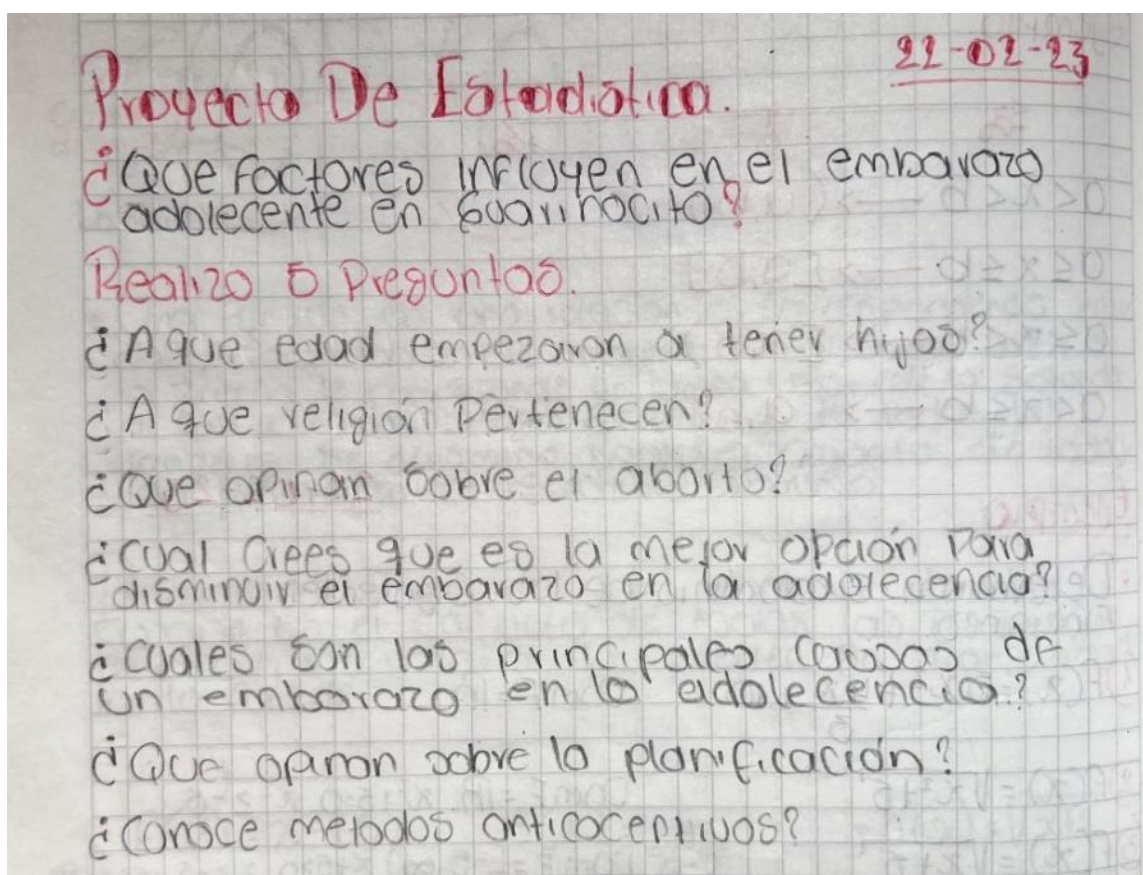 22-02-23
Proyecto De Estadistica.
¿Que factores influyen en el embarazo
adolecente en Guarinocito?
Realizo 5 Preguntas.
¿A que edad empezaron a tener hijos?
¿A que religión Pertenecen?
¿Que opinan sobre el aborto?
¿Cual Crees que es la mejor opción Para
disminuir el embarazo en la adolecencia?
¿Cuales son las principales causas de
un embarazo en la adolecencia?
¿Que opinan sobre la planificación?
¿Conoce metodos anticoceptivos?